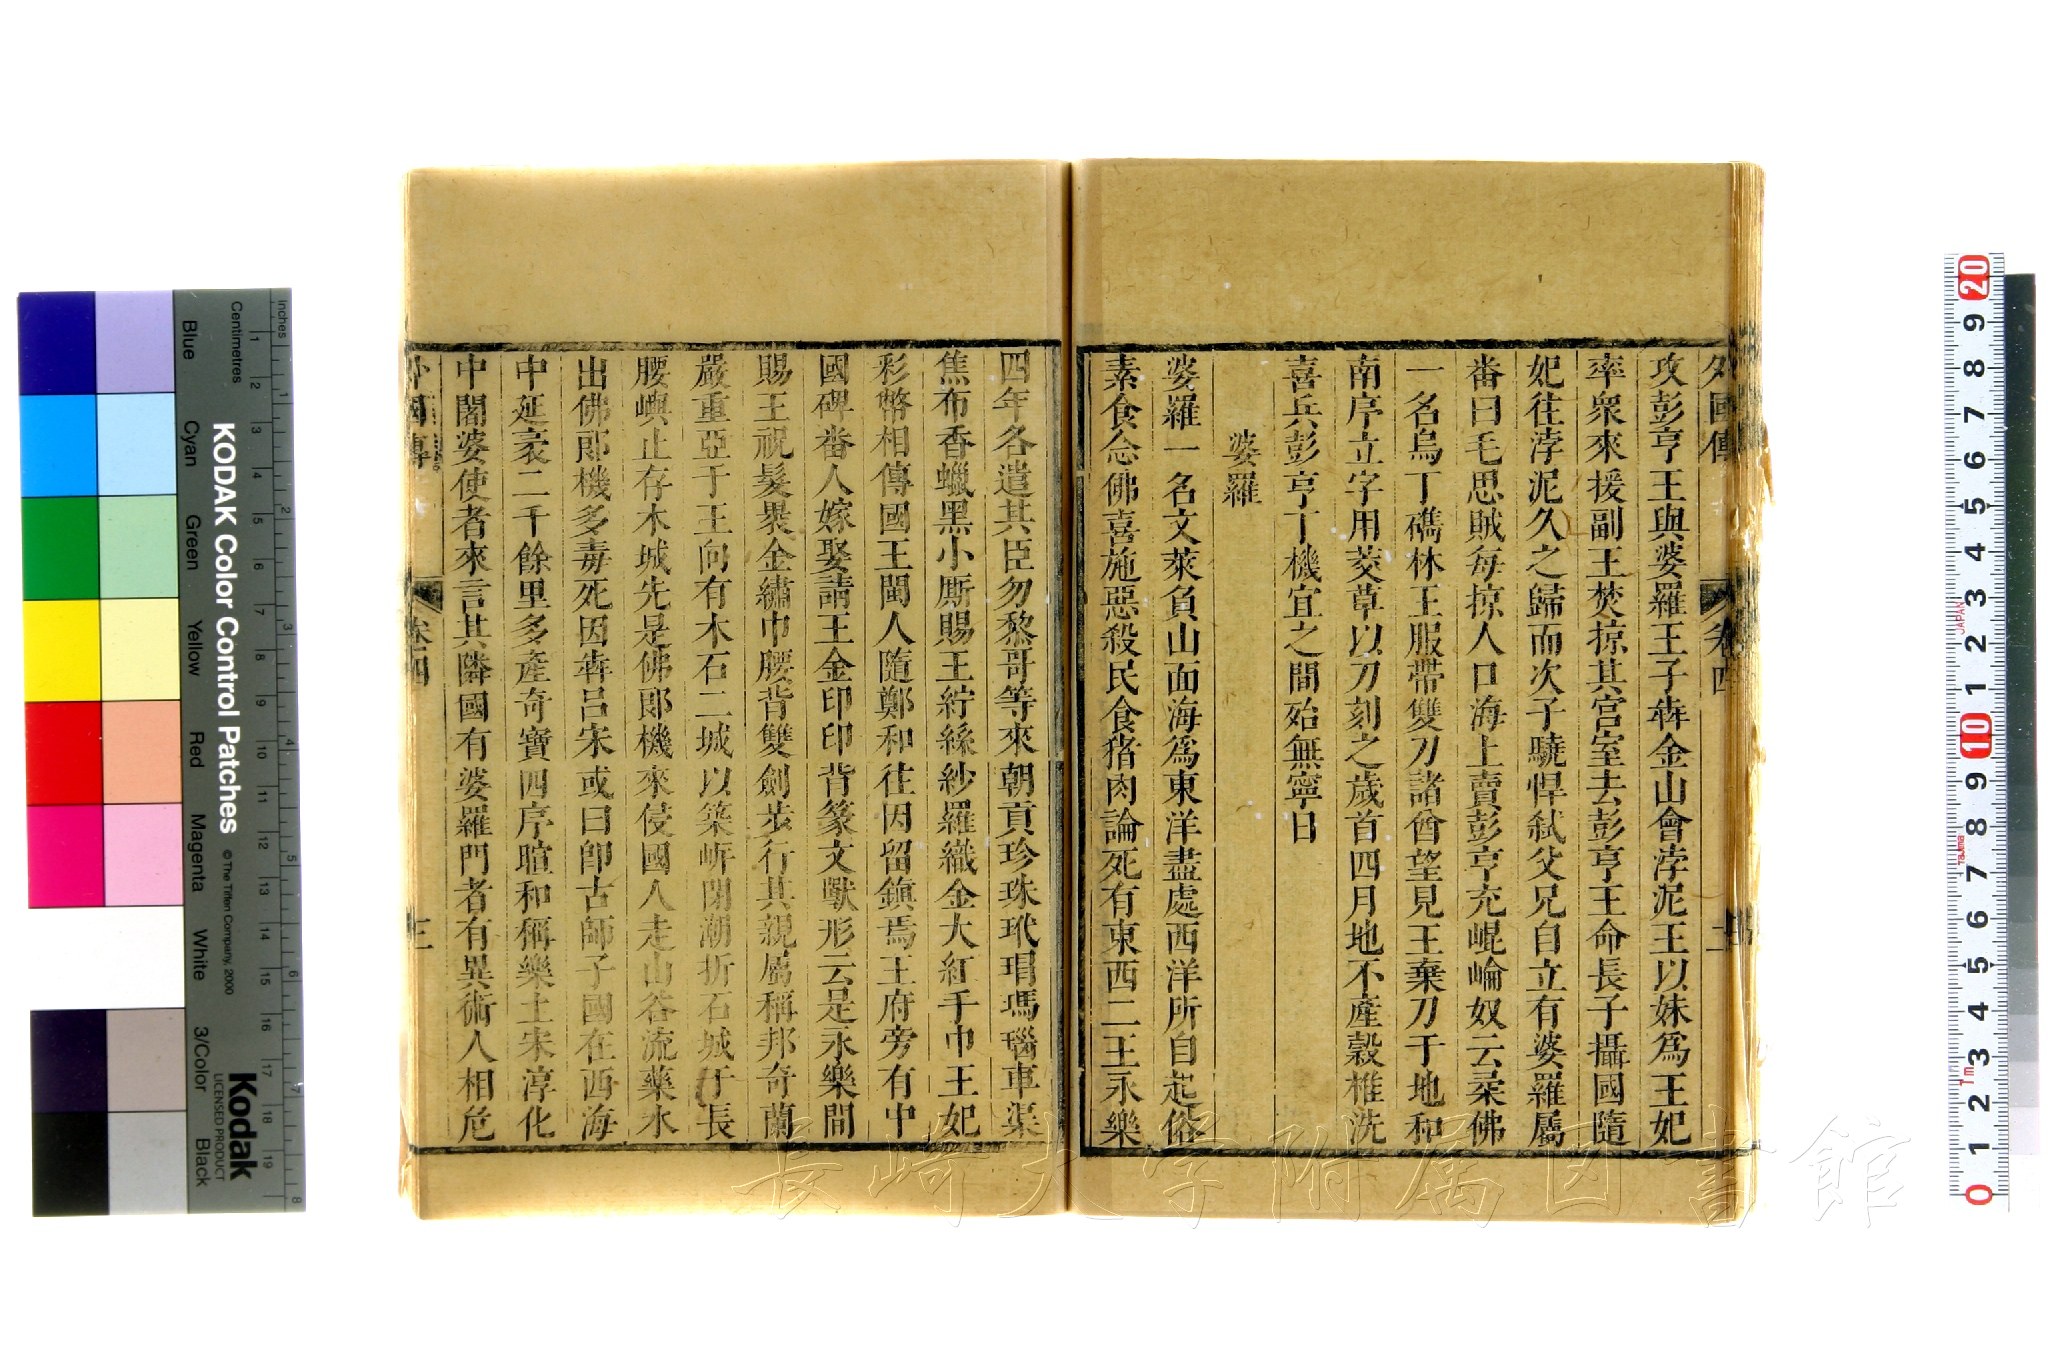 外國傳 卷四 二
攻彭亨王與婆羅王子犇金山會浡泥王以妹爲王妃
率衆來援副王焚掠其宮室去彭亨王命長子攝國隨
妃往浡泥久之歸而次子驍悍弒父兄自立有婆羅屬
番曰毛思賊每掠人口海上賣彭亨充崐崘奴云柔佛
一名烏丁礁林王服帶雙刀諸酋望見王棄刀于地和
南序立字用茭草以刀刻之歲首四月地不產穀椎洗
喜兵彭亨丁機宜之間殆無寧日
婆羅
婆羅一名文萊負山面海爲東洋盡處西洋所自起俗
素食念佛喜施惡殺民食猪肉論死有東西二王永樂
四年各遣其臣勿黎哥等來朝貢珍珠玳瑁瑪瑙車渠
焦布香蠟黑小厮賜王紵絲紗羅織金大紅手巾王妃
彩幣相傳國王閩人隨鄭和往因留鎮焉王府旁有中
國碑番人嫁娶請王金印印背篆文獸形云是永樂間
賜王祝髮褁金繡巾腰背雙劍步行其親屬稱邦奇蘭
嚴重亞于王向有木石二城以築㟁閉潮折石城于長
腰嶼止存木城先是佛郎機來侵國人走山谷流藥水
出佛郎機多毒死因犇呂宋或曰卽古師子國在西海
中延袤二千餘里多產奇寶四序暄和稱樂土宋淳化
中闍婆使者來言其隣國有婆羅門者有異術人相危
外國傳 卷四 三
KODAK Color Control Patches
© The Tiffen Company, 2000
Kodak
LICENSED PRODUCT
Inches
Centimetres
Blue
Cyan
Green
Yellow
Red
Magenta
White
3/Color
Black
長崎大学附属図書館
JAPAN
Tajima